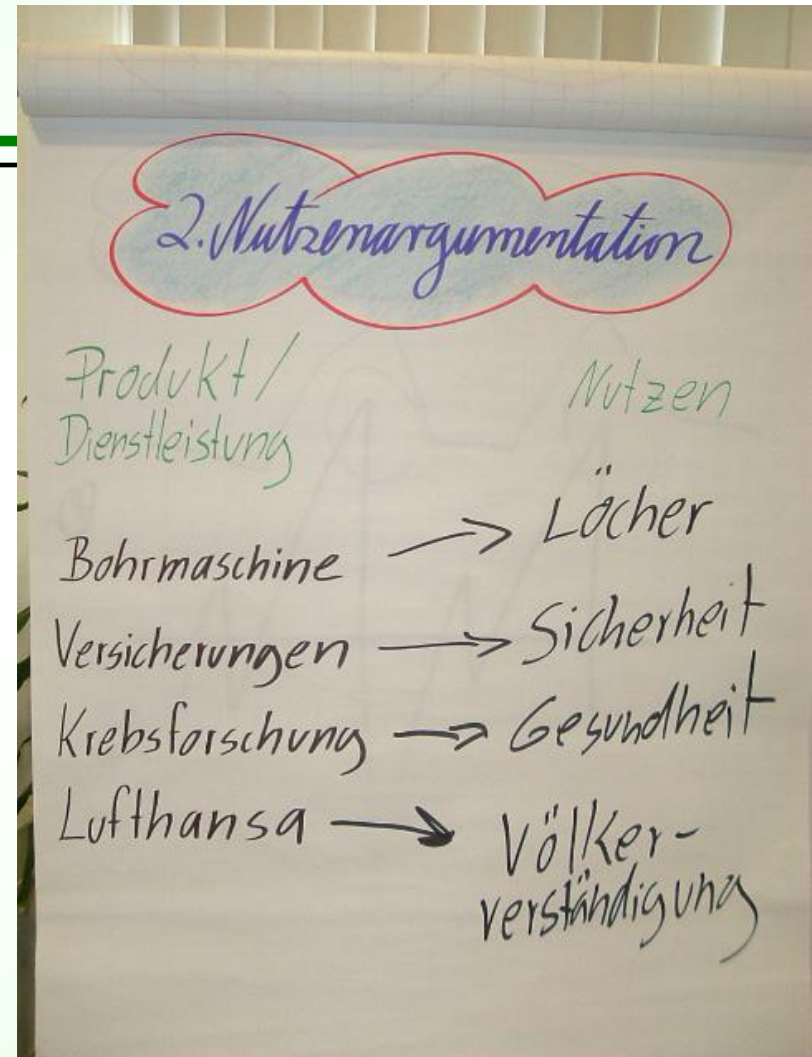 2. Nutzenargumentation
Produkt/ Nutzen
Dienstleistung
Bohrmaschine → Löcher
Versicherungen → Sicherheit
Krebsforschung → Gesundheit
Lufthansa → Völker-
verständigung